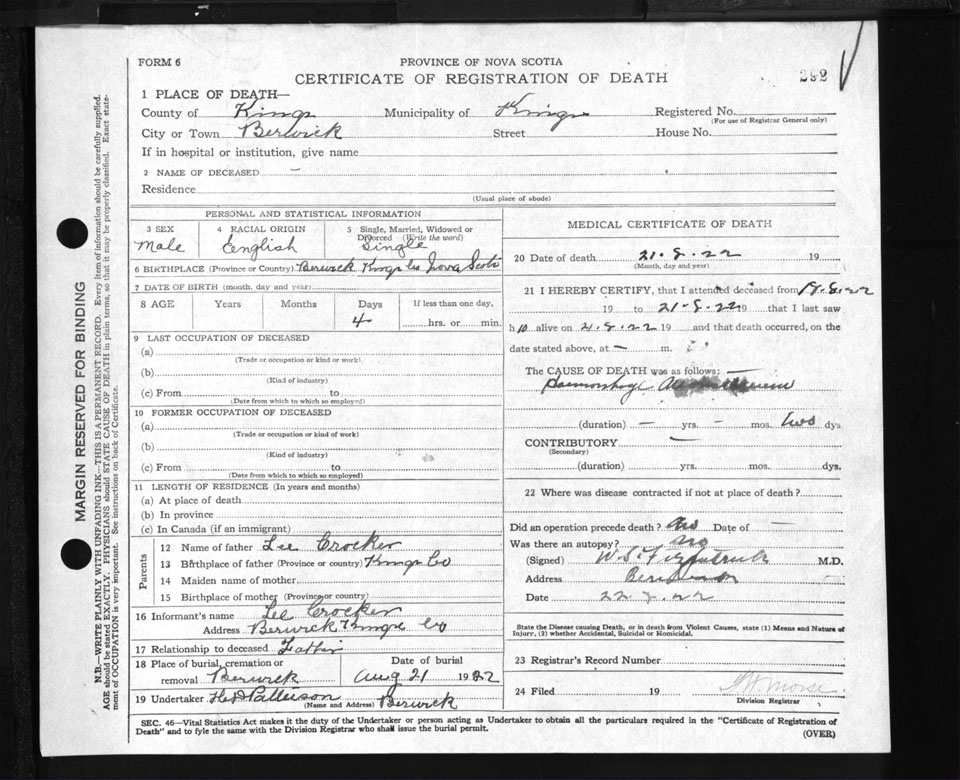 FORM 6
PROVINCE OF NOVA SCOTIA
292
CERTIFICATE OF REGISTRATION OF DEATH
1 PLACE OF DEATH—
County of Kings Municipality of Kings Registered No.
(For use of Registrar General only)
City or Town Berwick Street House No.
If in hospital or institution, give name
2 NAME OF DECEASED —
Residence
(Usual place of abode)
PERSONAL AND STATISTICAL INFORMATION
3 SEX 4 RACIAL ORIGIN 5 Single, Married, Widowed or Divorced (Write the word)
Male English Single
6 BIRTHPLACE (Province or Country) Berwick Kings Co Nova Scotia
7 DATE OF BIRTH (month, day and year)
8 AGE Years Months Days If less than one day,
4 hrs. or min.
9 LAST OCCUPATION OF DECEASED
(a)
(Trade or occupation or kind or work)
(b)
(Kind of industry)
(c) From to
(Date from which to which so employed)
10 FORMER OCCUPATION OF DECEASED
(a)
(Trade or occupation or kind of work)
(b)
(Kind of industry)
(c) From to
(Date from which to which so employed)
11 LENGTH OF RESIDENCE (In years and months)
(a) At place of death
(b) In province
(c) In Canada (if an immigrant)
Parents
12 Name of father Lee Crocker
13 Birthplace of father (Province or country) Kings Co
14 Maiden name of mother
15 Birthplace of mother (Province or country)
16 Informant's name Lee Crocker
Address Berwick Kings Co
17 Relationship to deceased Father
18 Place of burial, cremation or removal Berwick
Date of burial
Aug 21 1922
19 Undertaker Patterson Berwick
(Name and Address)
MEDICAL CERTIFICATE OF DEATH
20 Date of death 21.8.22 19
(Month, day and year)
21 I HEREBY CERTIFY, that I attended deceased from 18.8.22
19 to 21.8.22 19 that I last saw
h alive on 21.8.22 19 and that death occurred, on the
date stated above, at — m.
The CAUSE OF DEATH was as follows: —
Haemorrhage
(duration) — yrs. — mos. two dys.
CONTRIBUTORY —
(Secondary)
(duration) yrs. mos. dys.
22 Where was disease contracted if not at place of death?
Did an operation precede death? No Date of —
Was there an autopsy? No
(Signed) W. S. Fitzpatrick M.D.
Address
Date 22.8.22
State the Disease causing Death, or in death from Violent Causes, state (1) Means and Nature of
Injury, (2) whether Accidental, Suicidal or Homicidal.
23 Registrar's Record Number
24 Filed 19 Morse
Division Registrar
SEC. 46—Vital Statistics Act makes it the duty of the Undertaker or person acting as Undertaker to obtain all the particulars required in the "Certificate of Registration of
Death" and to fyle the same with the Division Registrar who shall issue the burial permit.
(OVER)
MARGIN RESERVED FOR BINDING
N.B.—WRITE PLAINLY WITH UNFADING INK—THIS IS A PERMANENT RECORD. Every item of information should be carefully supplied.
AGE should be stated EXACTLY. PHYSICIANS should STATE CAUSE OF DEATH in plain terms, so that it may be properly classified. Exact state-
ment of OCCUPATION is very important. See instructions on back of Certificate.